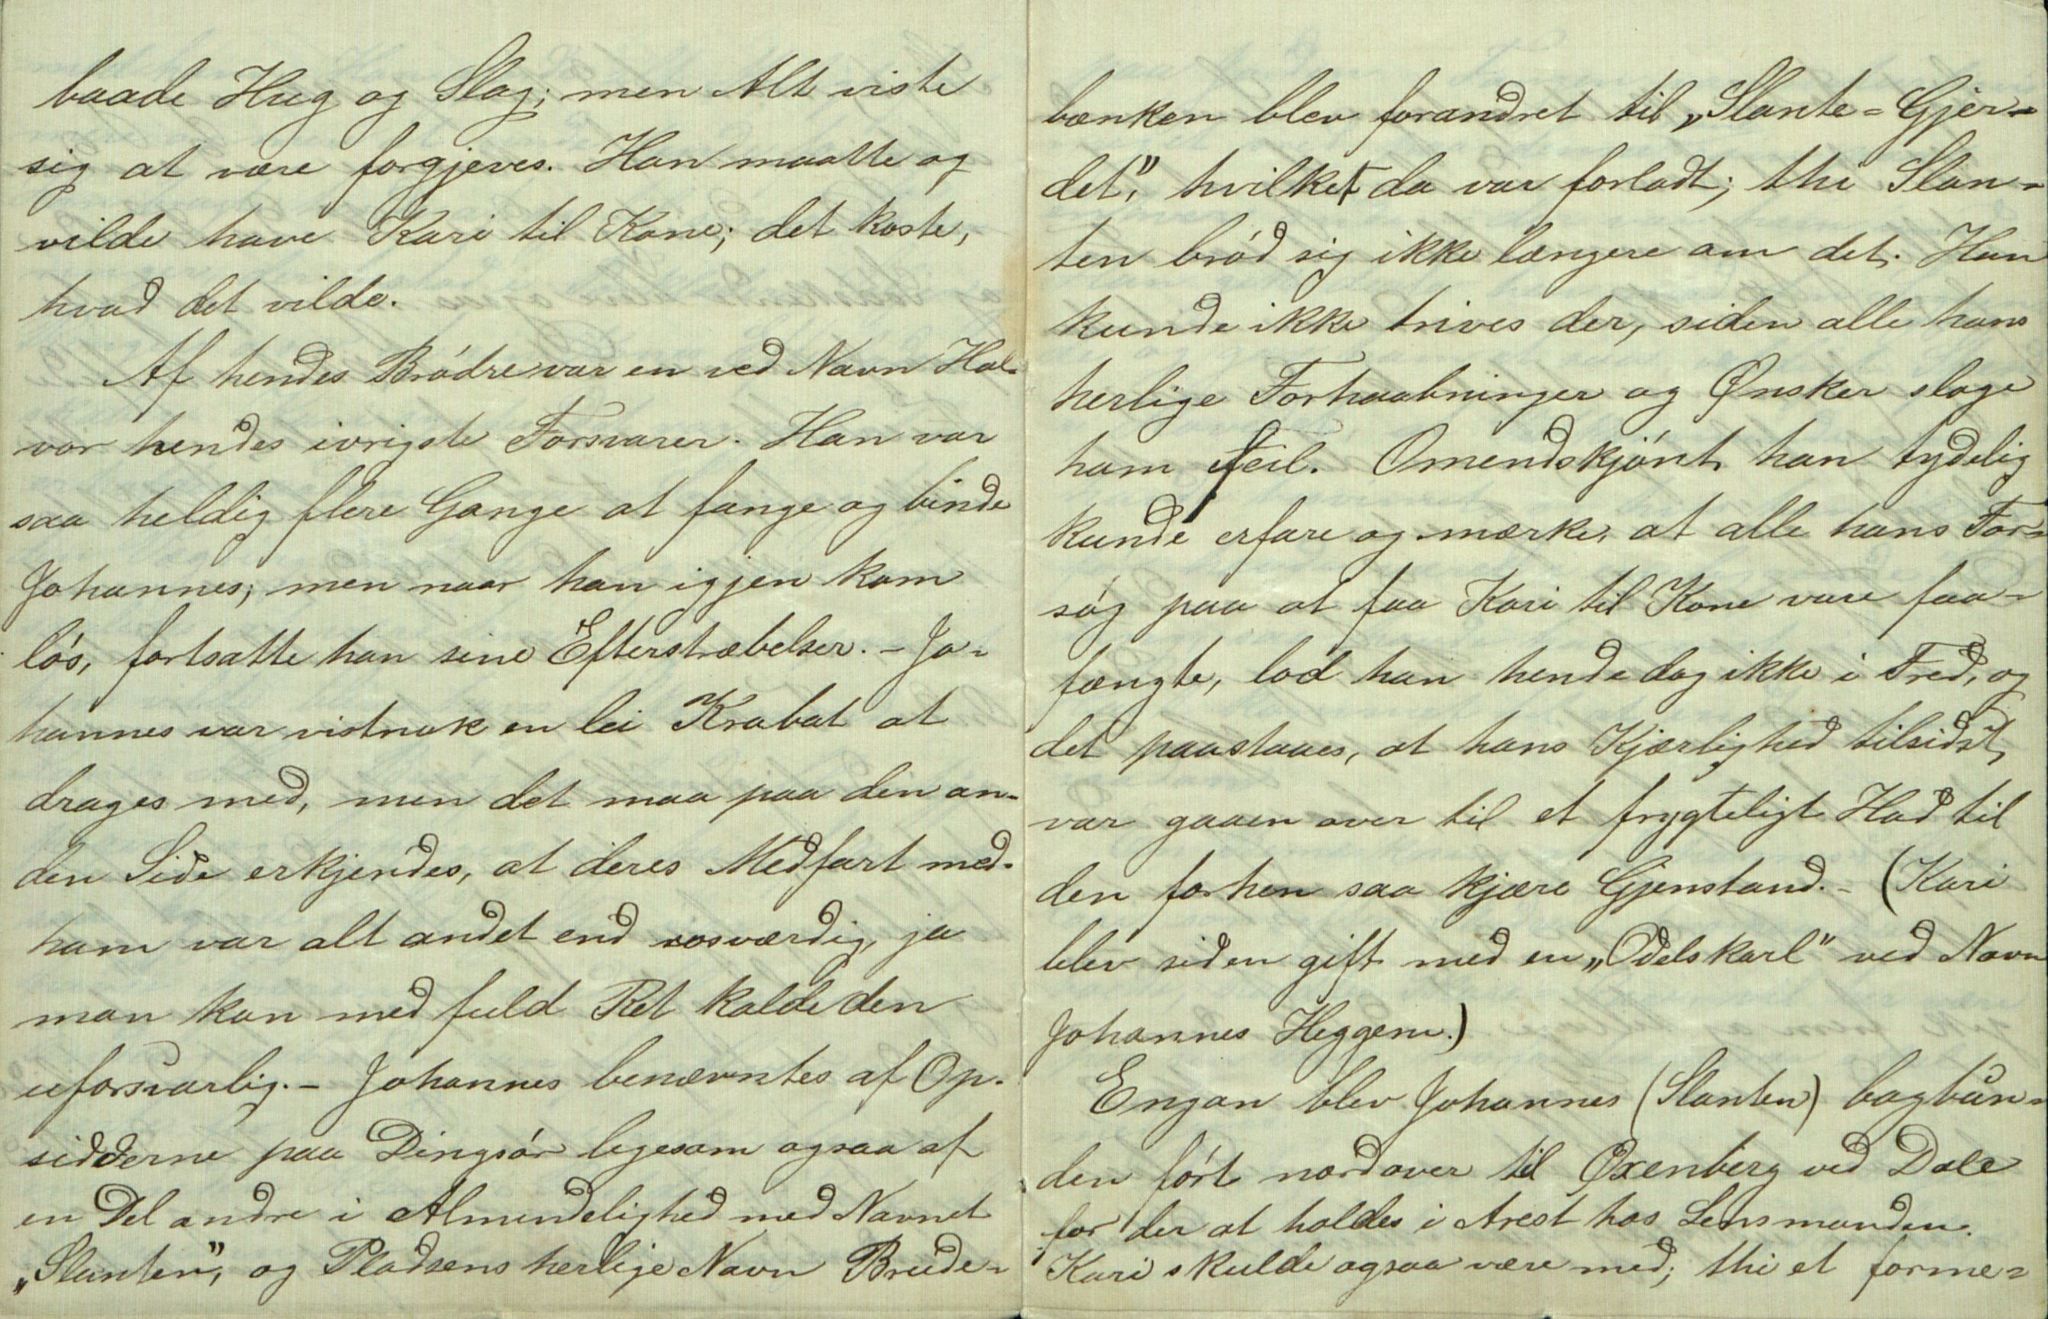 baade Hug og Slag; men Alt viste
sig at være forgjeves. Han maatte og
vilde have Kari til Kone; det koste,
hvad det vilde.
Af hendes Brødre var en ved Navn Hal-
vor hendes ivrigste Forsvarer. Han var
saa heldig flere Gange at fange og binde
Johannes; men naar han igjen kom
løs, fortsatte han sine Efterstræbelser. – Jo-
hannes var vistnok en lei Krabat at
drages med, men det maa paa den an-
den Side erkjendes, at deres Medfart med
ham var alt andet end rosværdig, ja
man kan med fuld Ret kalde den
uforsvarlig. – Johannes benævntes af Op-
sidderne paa Dingsør ligesom ogsaa af
en Del andre i Almindelighed med Navnet
„Slanten”, og Pladsens herlige Navn Brude-
bænken blev forandret til „Slante-Gjer-
det”, hvilket da var forladt; thi Slan-
ten brød sig ikke længere om det. Han
kunde ikke trives der, siden alle hans
herlige Forhaabninger og Ønsker sloge
ham feil. Omendskjønt han tydelig
kunde erfare og mærke, at alle hans For-
søg paa at faa Kari til Kone vare faa-
fængte, lod han hende dog ikke i Fred, og
det paastaaes, at hans Kjærlighed tilsidst
var gaaen over til et frygteligt Had til
den forhen saa kjære Gjenstand. – (Kari
blev siden gift med en „Odelskarl” ved Navn
Johannes Heggem.)
Engan blev Johannes (Slanten) bagbun-
den ført nordover til Øxenberg ved Dale
for der at holdes i Arest hos Lensmanden.
Kari skulde ogsaa være med; thi et forme-